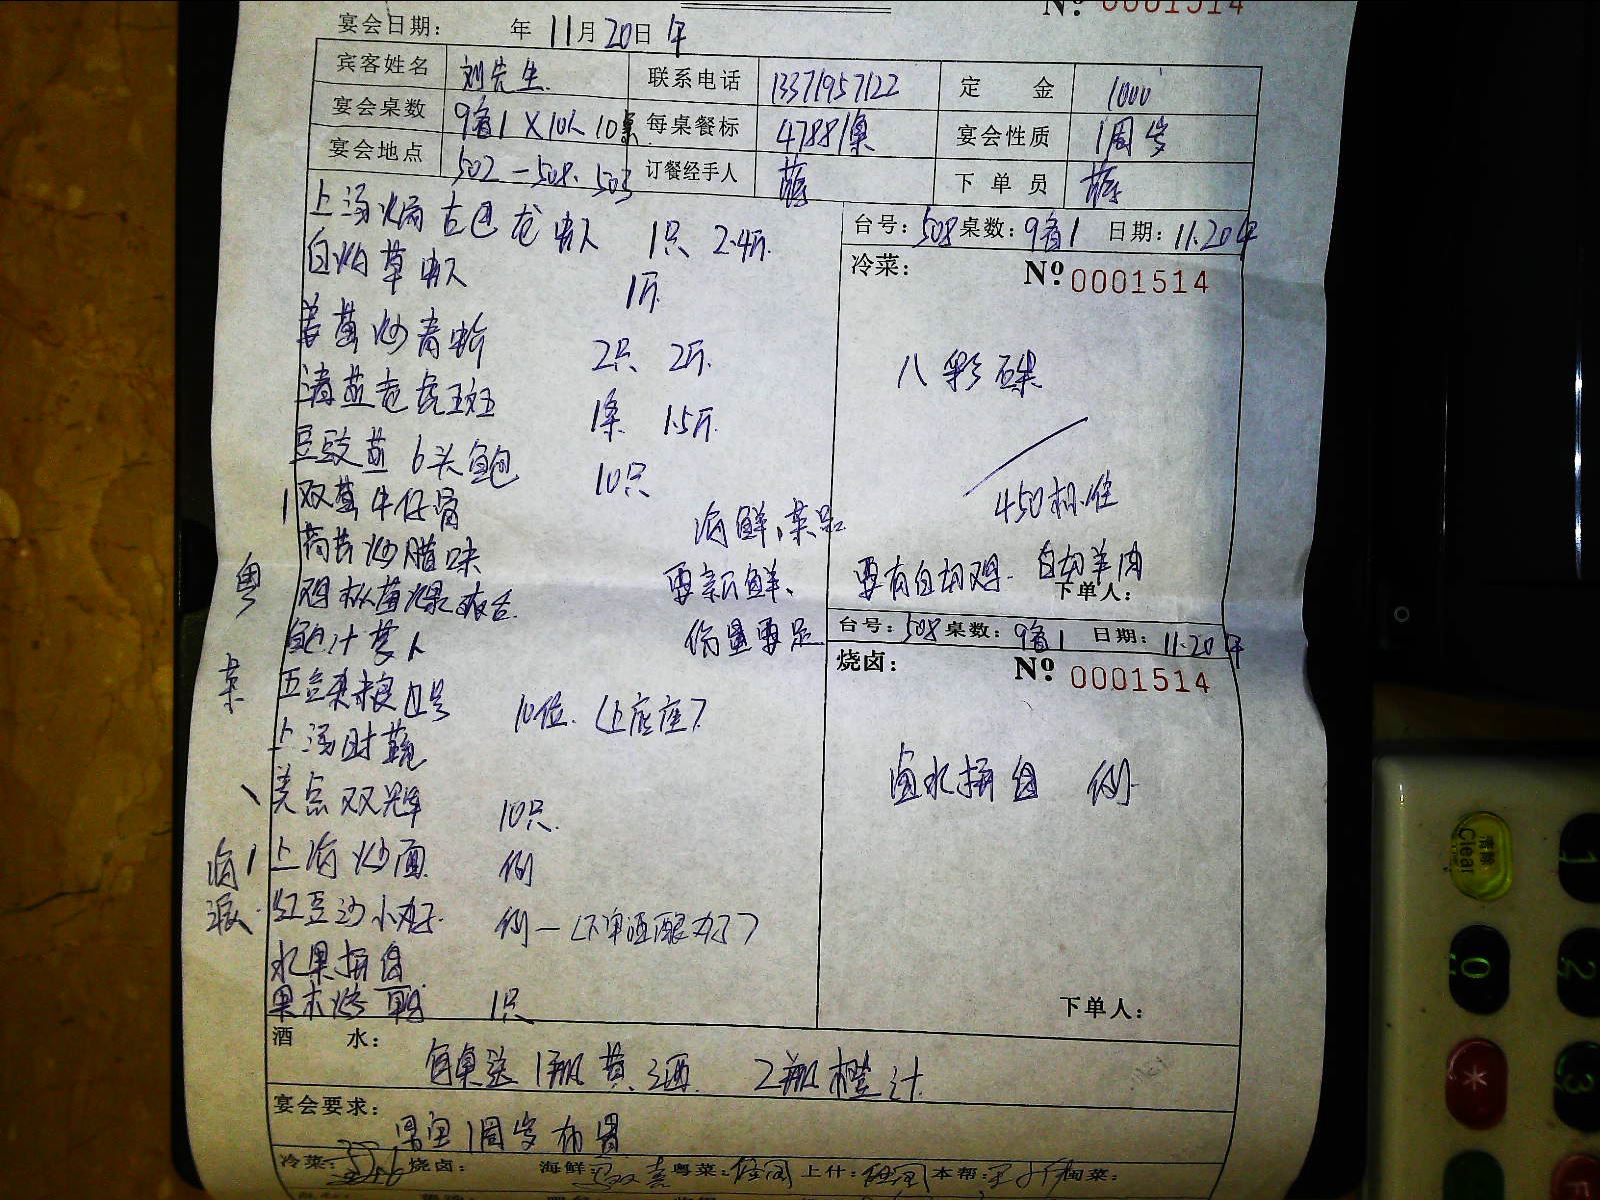 Nº 0001514
宴会日期： 年 11月 20日 午
宾客姓名 刘先生 联系电话 13371957122 定 金 1000
宴会桌数 9备1×10人 10桌 每桌餐标 4788/桌 宴会性质 1周岁
宴会地点 502—508、503 订餐经手人 薛 下单员 薛
上汤焗古巴龙虾 1只 2.4斤
白灼草虾 1斤
姜葱炒青蟹 2只 2斤
清蒸老虎斑 1条 1.5斤
豆豉蒸6头鲍 10只
双葱牛仔骨
荷芹炒腊味
鸡枞菌爆
鲍汁
五谷杂粮 10位（上底座）
上汤时蔬
美点双辉 10只
上海炒面 例
红豆沙小丸子 例
水果拼盘
果木烤鸭 1只
粤菜
海派
海鲜、菜品
要新鲜、
份量要足
台号：508 桌数：9备1 日期：11.20午
冷菜： Nº 0001514
八彩碟
450标准
要有白切鸡、白切羊肉
下单人：
台号：508 桌数：9备1 日期：11.20午
烧卤： Nº 0001514
卤水拼盘 例
下单人：
酒 水：
每桌送1瓶黄酒 2瓶橙汁
宴会要求：
男宝1周岁布置
冷菜： 烧卤： 海鲜： 粤菜： 上什： 本帮： 点菜：
清除
Clear
1
0
2
3
*